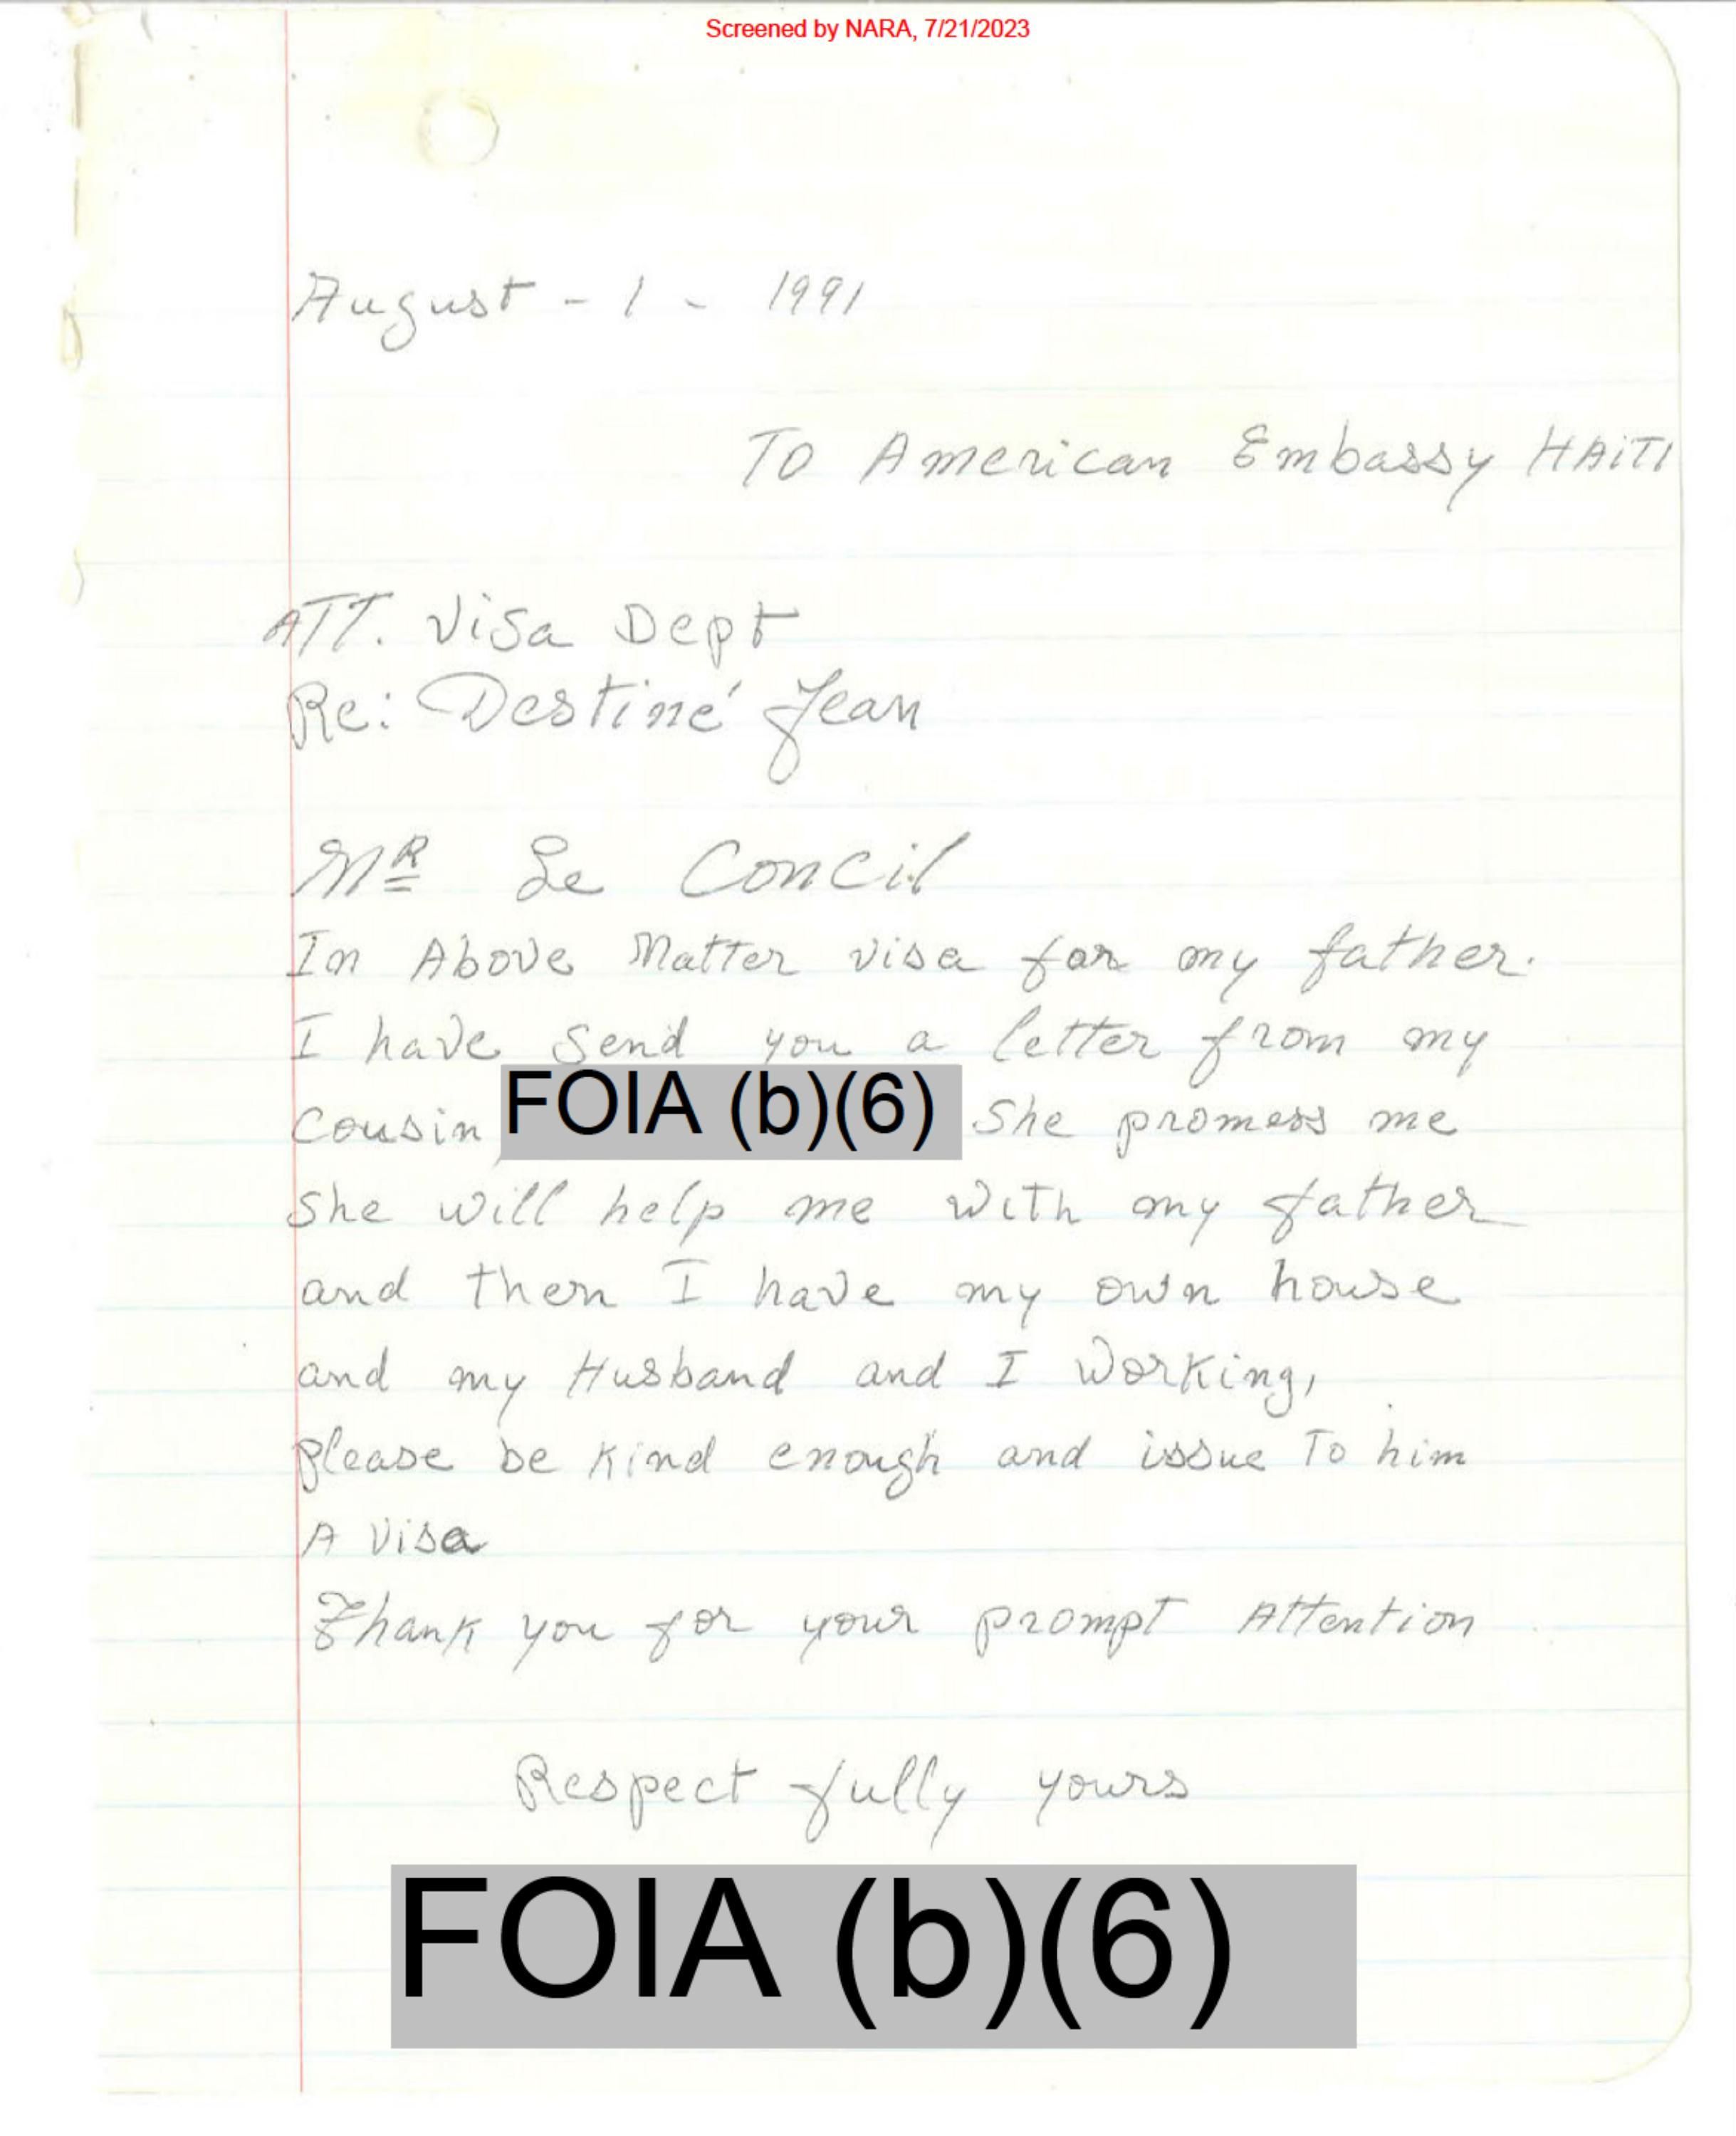 Screened by NARA, 7/21/2023
August - 1 - 1991
To American Embassy HAiTI
ATT. Visa Dept
Re: Destiné Jean
MR Le Concil
In Above Matter visa for my father.
I have send you a letter from my
cousin FOIA (b)(6) She promess me
she will help me with my father
and then I have my own house
and my Husband and I working,
please be kind enough and issue To him
A Visa
Thank you for your prompt Attention
Respect fully yours
FOIA (b)(6)